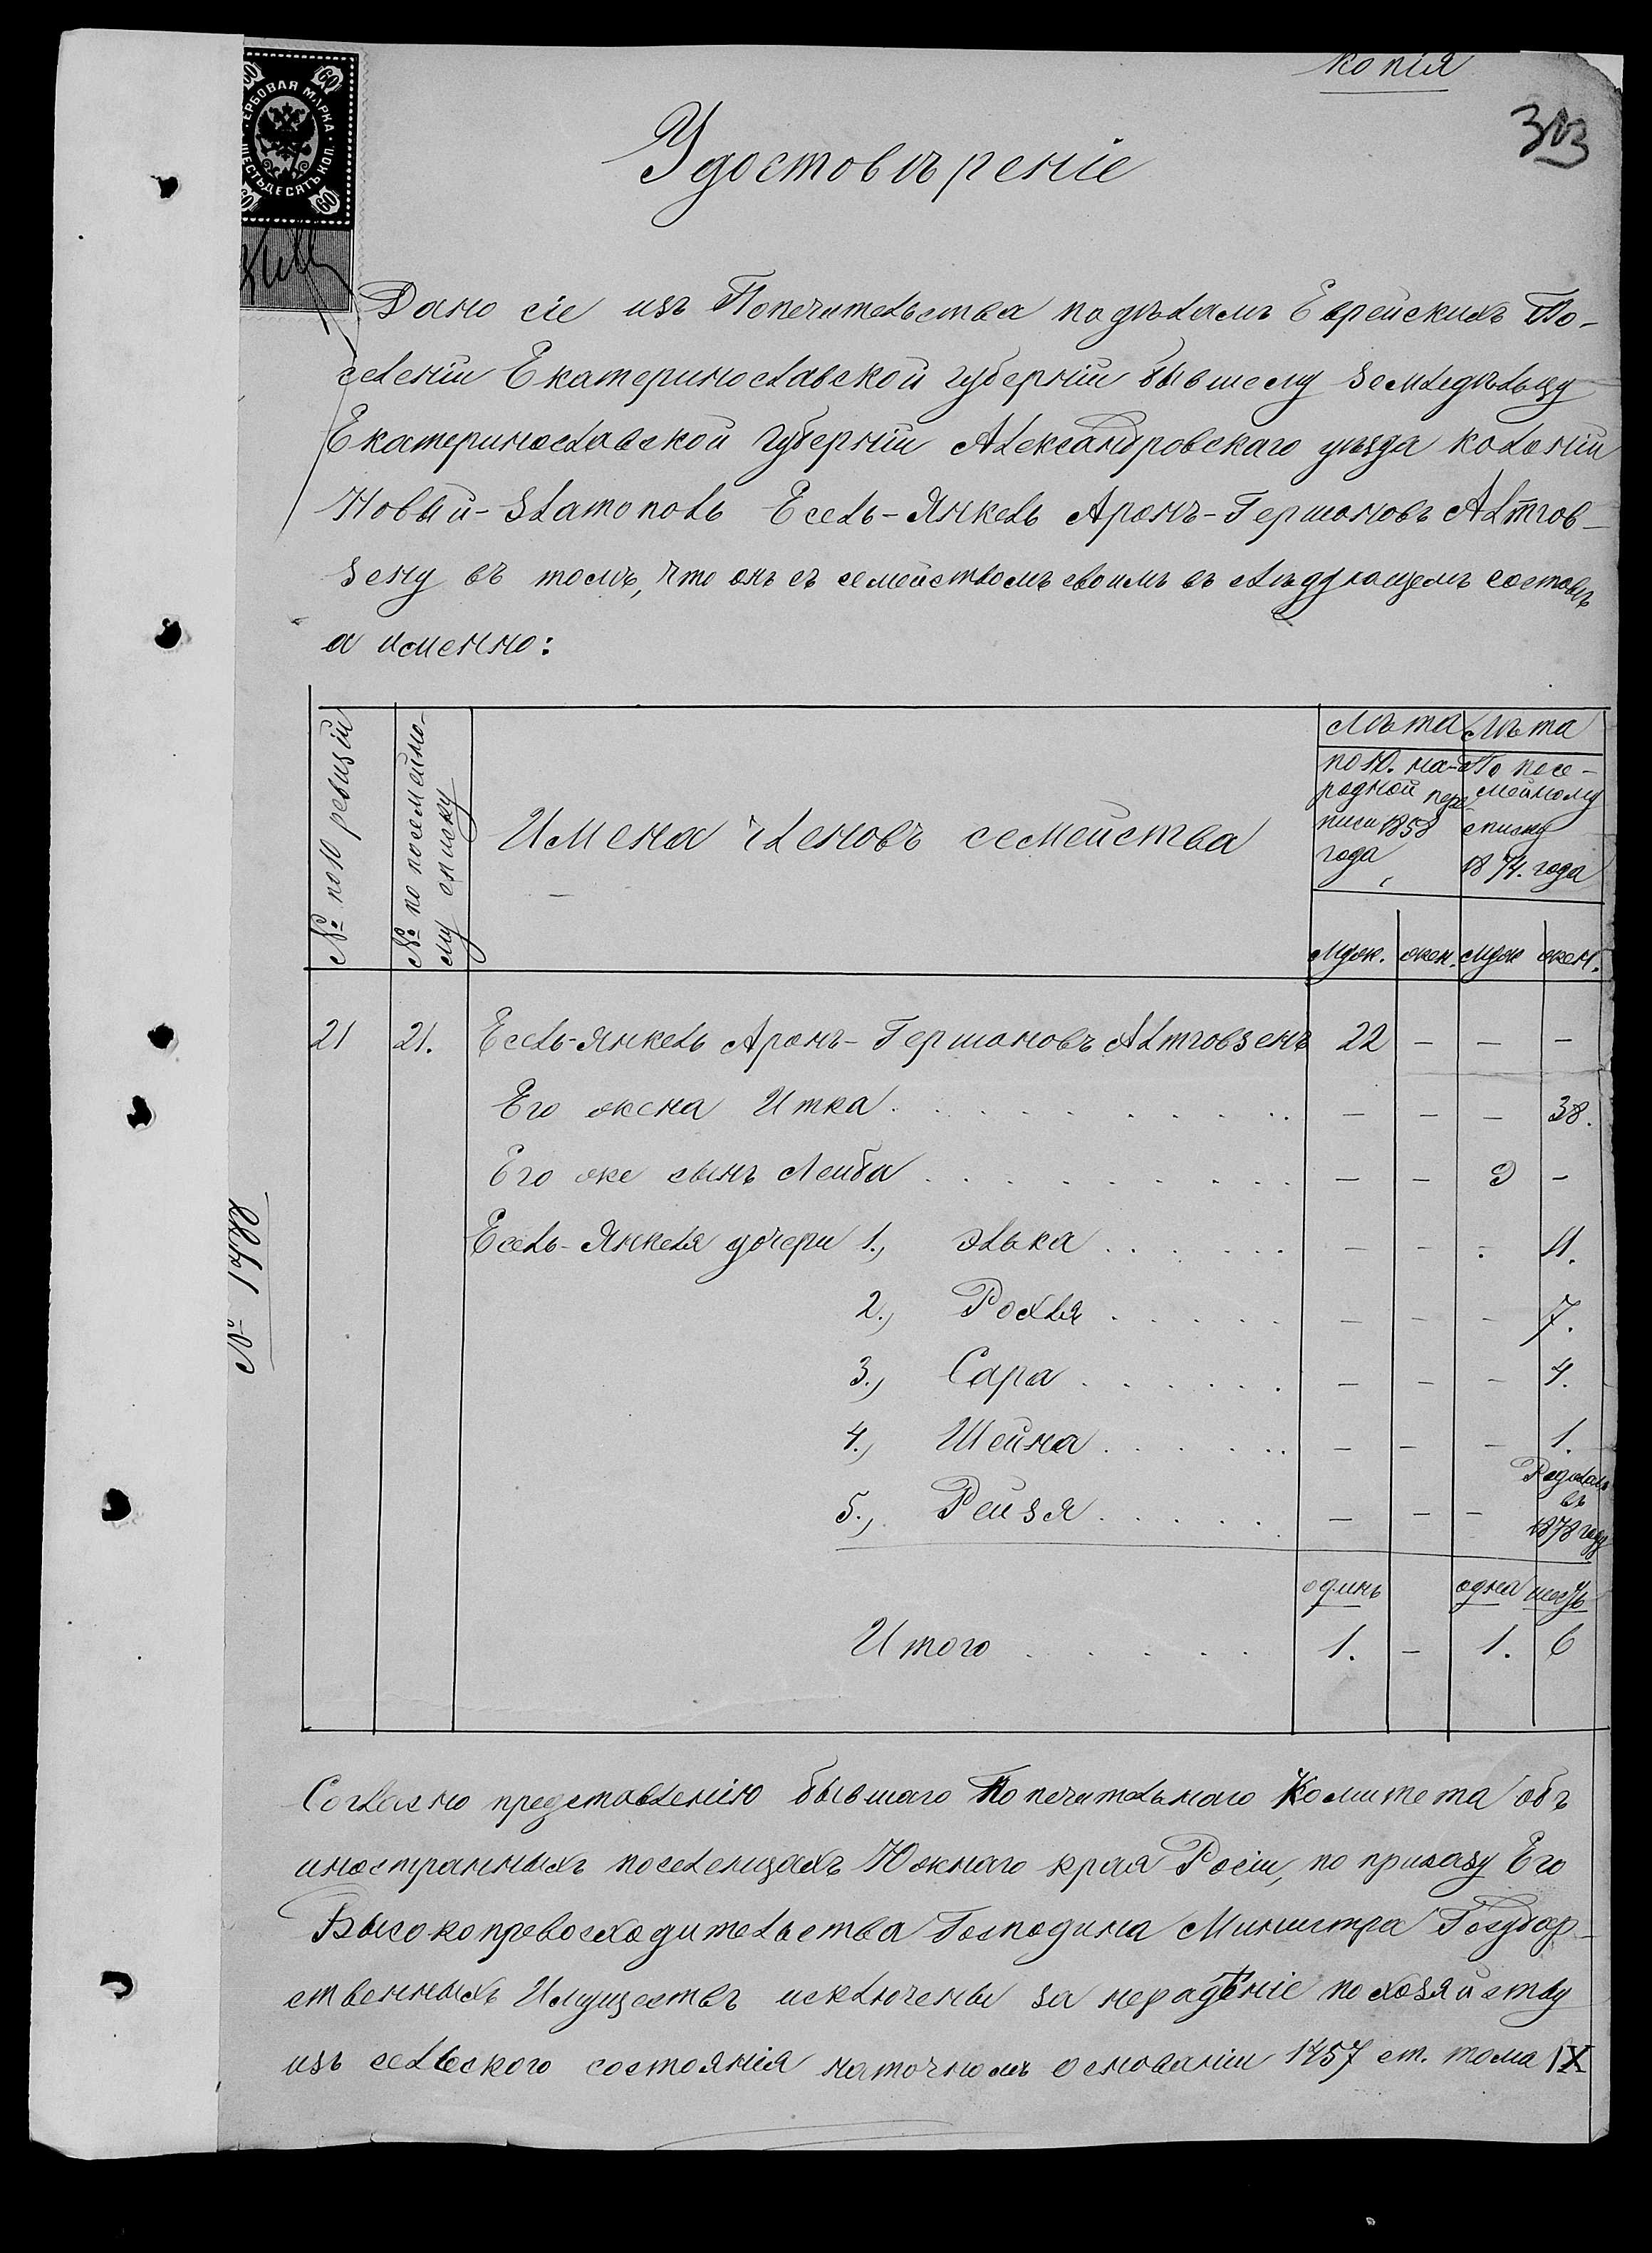 копія
303
ГЕРБОВАЯ МАРКА
ШЕСТЬДЕСЯТЪ КОП.
60 60 60 60
Удостовѣреніе
Дано сіе изъ Попечительства по дѣламъ Еврейскихъ По-
селеніи Екатеринославской губерніи бывшему земледѣльцу
Екатеринославской Губерніи Александровскаго уѣзда колоніи
Новый-Златополь Есель-Янкель Аронъ-Гершоновъ Алтгов-
зену въ томъ, что онъ съ семействомъ своимъ въ слѣдующемъ составѣ
а именно:
№ по 10 ревизіи
№ по посемейно-
му списку
Имена членовъ семейства
Лѣта Лѣта
по 10. на- По посе-
родной пере мейному
писи 1858 списку
года, 1874. года
Муж. жен. Муж жен.
21 21. Есель-Янкель Аронъ-Гершоновъ Алтговзенъ 22 – – –
Его жена Итка . . . . . . . . . . – – – 38.
Его же сынъ Лейба . . . . . . . . . . – – 9 –
Есель-Янкеля дочери 1., Элька . . . . . . – – . 11.
2., Рохля . . . . . – – – 7.
3., Сара . . . . . . – – – 4.
4., Шейна . . . . . . – – – 1.
Родилась
въ
5., Рейзя . . . . . . – – – 1878 году
одинъ одна шесть
Итого . . . . . . 1. – 1. 6
№ 1488
Согласно представленію бывшаго Попечительнаго Комитета объ
иностранныхъ поселенцахъ Южнаго края Росіи, по приказу Его
Высокопревосходительства Господина Министра Государ-
ственныхъ Имуществъ исключены за нерадѣніе по хозяйству
изъ сельского состоянія на точномъ основаніи 1457 ст. тома IX